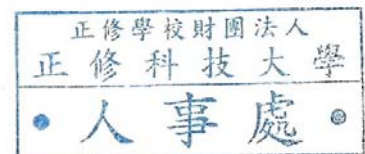 正修學校財團法人
正修科技大學
人事處